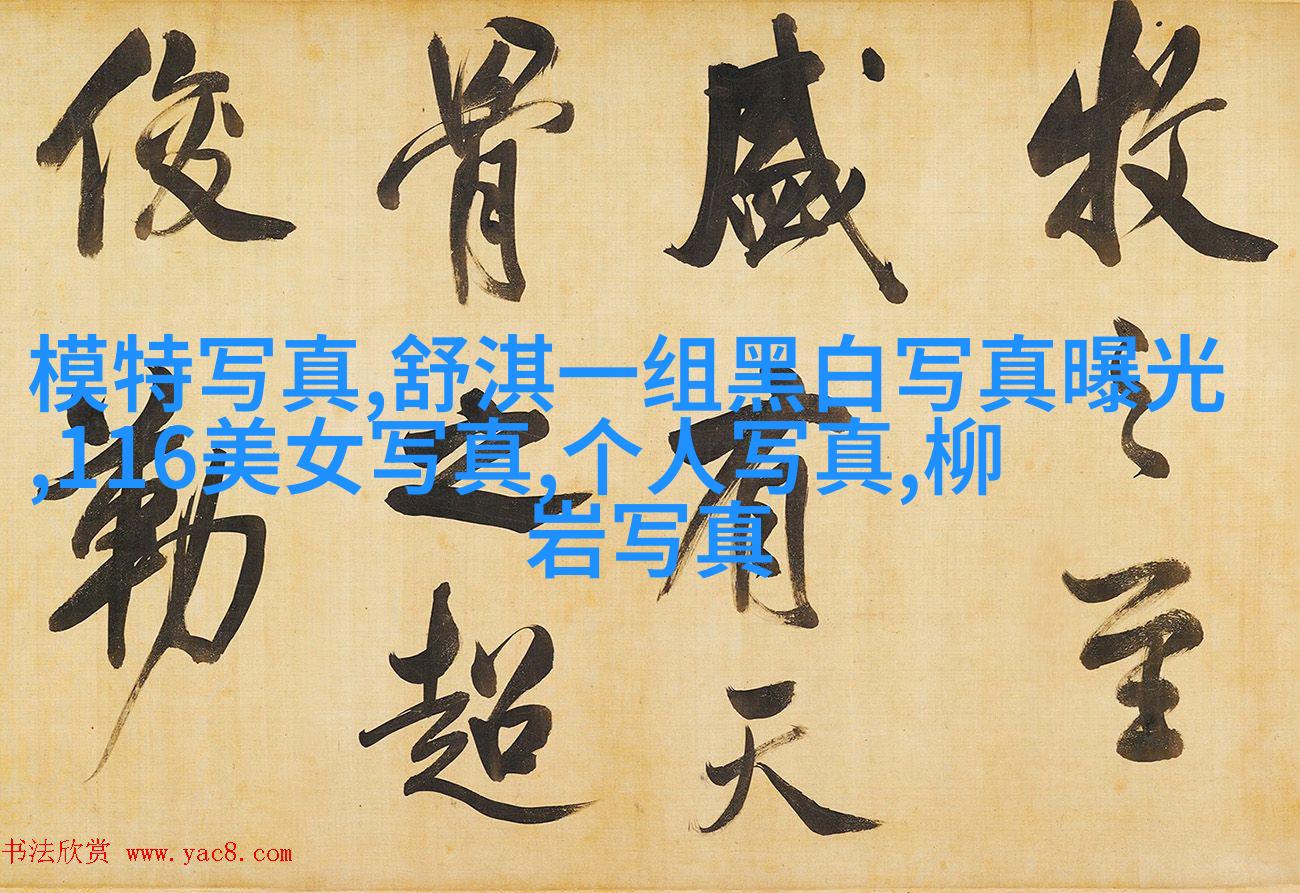 牧之至
盛有天
骨之超
俊勒
模特写真,舒淇一组黑白写真曝光
,116美女写真,个人写真,柳
岩写真
书法欣赏 www.yac8.com